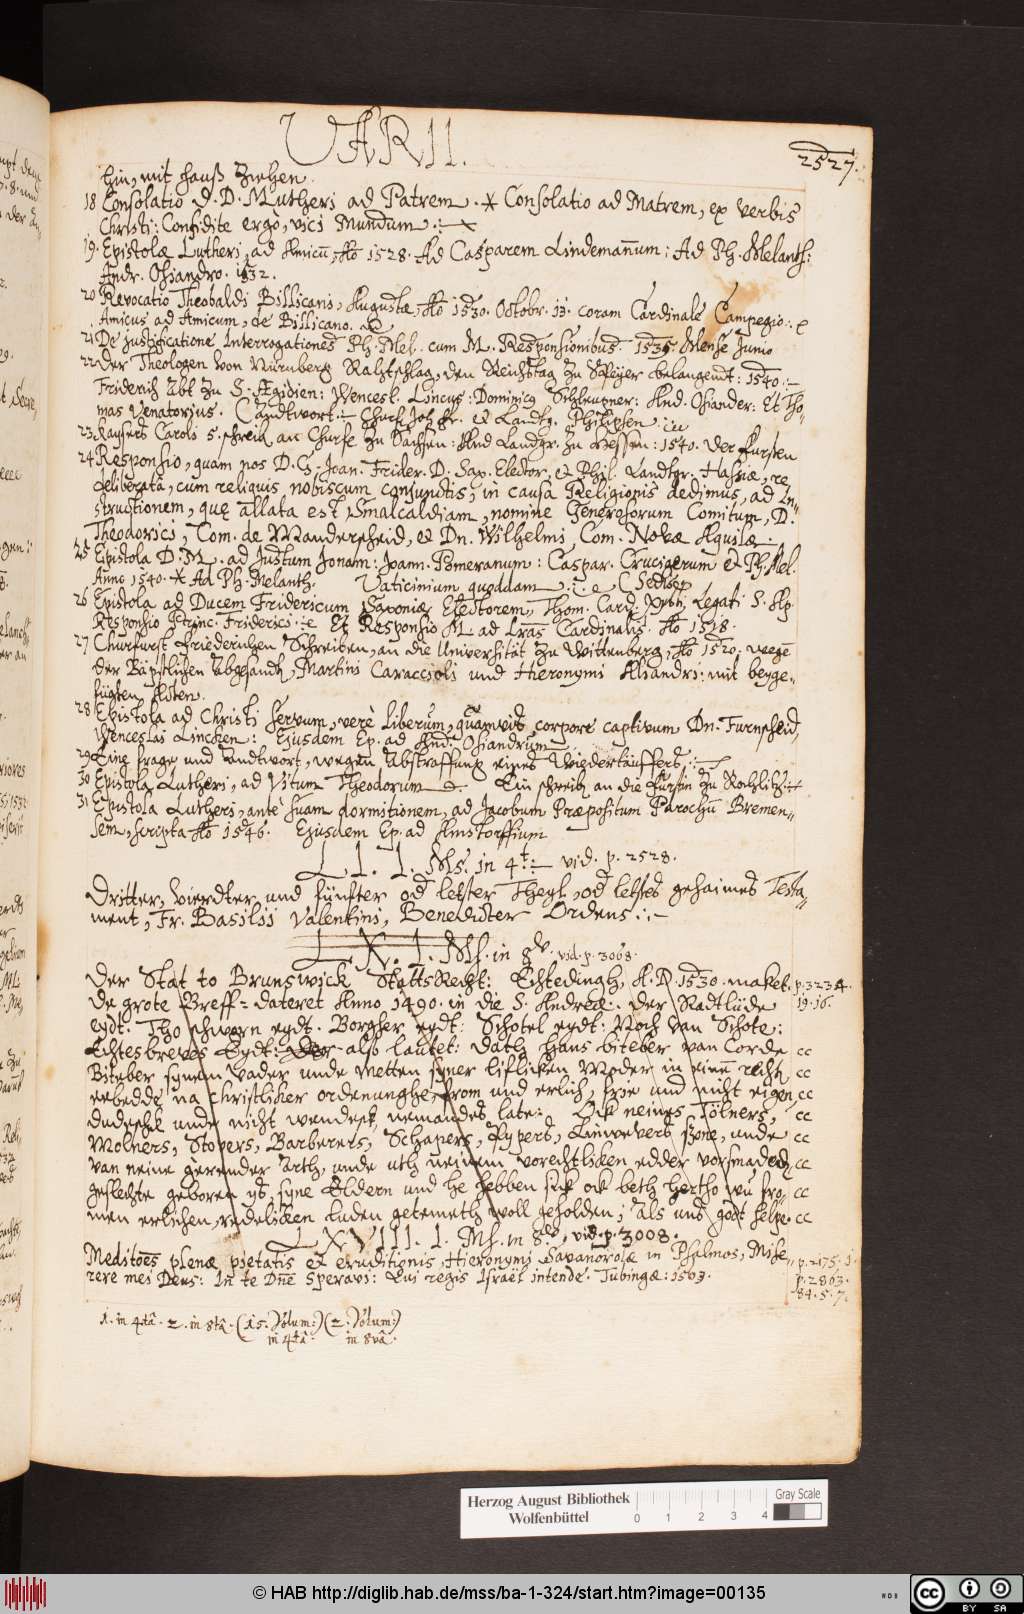 VARII.
2527.
hin, mit hauß ziehen.
18 Consolatio D. D. M Lutheri ad Patrem. * Consolatio ad Matrem, ex verbis
Christi: Confidite ergò, vici Mundum.
19. Epistolæ Lutheri, ad Amicū, Ao 1528. Ad Casparem Lindemañum: Ad Ph. Melanth:
Andr. Osiandro. 1532.
20 Revocatio Theobaldi Billicani, Augustæ, Ao 1530. Octobr. 13. coram Cardinale Campegio:
Amicus ad Amicum, de Billicano.
21 De Justificatione Interrogationes Ph. Mel. cum M. Responsionibus. 1536 Mense Junio
22 Der Theologen von Nürnberg Rahtschlag, den Reichstag zu Speyer belangendt: 1540.
Friderich Abt zu S. Ægidien: Wencesl. Lincus: Dominicg Schleupner: And. Osiander: Et Tho-
mas Venatorius. Andtwort Churf. Joh. Fr. et Landtg. Philipsen
23 Kaysers Caroli 5. schreib. an Churfe zu Sachsen: And Landgr. zu Hessen: 1540. Der Fursten
24 Responsio, quam nos D. G. Joan. Frider. D. Sax. Elector, et Phil. Landtgr. Hassiæ, re
deliberatâ, cum reliquis nobiscum conjunctis, in causa Religionis dedimus, ad In-
structionem, quę allata est Smalcaldiam, nomine Generosorum Comitum, D.
Theodorici, Com. de Manderscheid, et Dn. Wilhelmi, Com. Novæ Aquilæ.
25 Epistola D. M. ad Justum Jonam: Joann. Pomeranum: Caspar. Crucigerum et Ph. Mel.
Anno 1540. * Ad Ph. Melanth. Vaticinium quoddam
26 Epistola ad Ducem Fridericum Saxoniæ Electorem, Thom. Card. Legati S. Ap.
Responsio Princ. Friderici. Et Responsio M. ad Lr̃as Cardinalis. Ao 1528.
27 Churfurst Friederichen Schreiben, an die Universität zu Wittenberg, Ao 1520. wege
der Bäpstlichen Abgesandt, Martini Caraccioli und Hieronymi Aleandri: mit beyge-
fügten Acten.
28 Epistola ad Christi servum, verè liberum, quamvis corpore captivum Dn.
Wenceslai Lincken: Ejusdem Ep. ad And. Osiandrum
29 Eine frage und Andtwort, wegen Abstraffung eines Wiedertäuffers
30 Epistola Lutheri, ad Vitum Theodorum. Ein schreib. an die Fürstin zu Rochlitz.
31 Epistola Lutheri, antè suam dormitionem, ad Jacobum Præpositum Parochū Bremen-
sem, scripta Ao 1546. Ejusdem Ep. ad Amstorffium
LI. 1. Ms. in 4t. vid. p. 2528.
Dritter, Vierdter und fünfter od letster Theyl, od letstes gehaimes Testa-
ment, Fr. Basilii Valentini, Benedicter Ordens.
LX. 1. Ms. in 8v. vid. p. 3068.
Der Stat to Brunswick StattsRecht: Echtedingh, A. D. 1530. maket. p. 3234.
De grote Breff = dateret Anno 1490. in die S. Andreæ. Der Radtlude 19. 16.
eydt. Tho schwern eydt. Borgher eydt: Schotel eydt: Noch van Schote:
Echtesbreves Eydt: also lautet: Dath Hans biteber van Corde cc
Biteber synem Vader unde Metten syner liflicken Moder in einē rechtē cc
eebedde na christliker ordenunghe from und erlich, frie und nicht eigen, cc
dudesche unde nicht wendesk nemandes late: Ock neines Tölners, cc
Molners, Stovers, Barberers, Schapers, Pypers, Linwevers sone, unde cc
van neine gerender Arth, unde uth neinem vorechtliken edder vorsmadedē cc
geslechte geboren ys, syne Eldern und he hebben sick ock beth hertho wu fro- cc
men erlichen, redelicken luden getemeth woll geholden; Als uns godt helpe. cc
LXVIII. 1. Ms. in 8o, vid. p. 3008.
Meditões plenæ pietatis et eruditionis, Hieronymi Savanorolæ in Psalmos, Mise- p. 2175. 1.
rere mei Deus: Iñ te Dñe Speravi: Qui regis Israël intende. Tubingæ: 1563. p. 2863.
84. 5. 7.
1. in 4tâ. 2. in 8tâ. (15. Volum:) (2. Volum:)
in 4tâ. in 8vâ.
Herzog August Bibliothek
Wolfenbüttel
0 1 2 3 4
Gray Scale
© HAB http://diglib.hab.de/mss/ba-1-324/start.htm?image=00135
cc BY SA